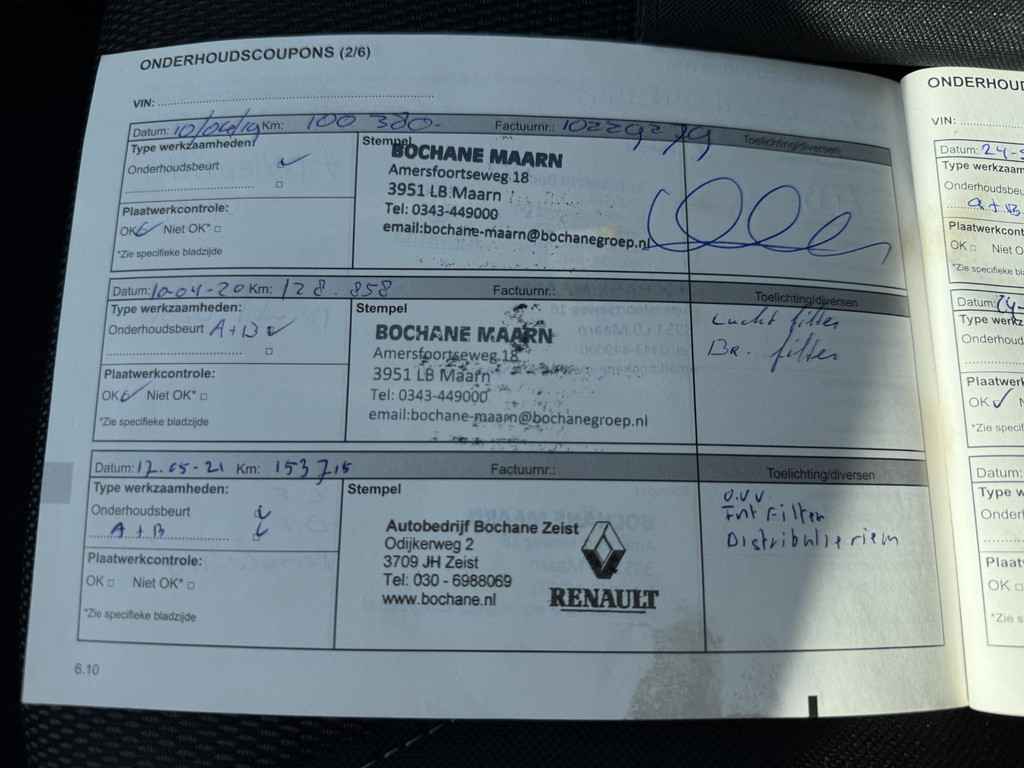 ONDERHOUDSCOUPONS (2/6)
VIN:
Datum: 10/04/19 Km: 100 380.- Factuurnr.: 10229279
Toelichting/diversen
Type werkzaamheden:
Onderhoudsbeurt
Plaatwerkcontrole:
OK Niet OK*
*Zie specifieke bladzijde
Stempel
BOCHANE MAARN
Amersfoortseweg 18
3951 LB Maarn
Tel: 0343-449000
email:bochane-maarn@bochanegroep.nl
Datum: 10-04-20 Km: 128.858 Factuurnr.:
Toelichting/diversen
Type werkzaamheden:
Onderhoudsbeurt A+B
Plaatwerkcontrole:
OK Niet OK*
*Zie specifieke bladzijde
Stempel
BOCHANE MAARN
Amersfoortseweg 18
3951 LB Maarn
Tel: 0343-449000
email:bochane-maarn@bochanegroep.nl
Lucht filter
Br. filter
Datum: 12.05-21 Km: 153715 Factuurnr.:
Toelichting/diversen
Type werkzaamheden:
Onderhoudsbeurt
A+B
Plaatwerkcontrole:
OK Niet OK*
*Zie specifieke bladzijde
Stempel
Autobedrijf Bochane Zeist
Odijkerweg 2
3709 JH Zeist
Tel: 030 - 6988069
www.bochane.nl
RENAULT
Int Filter
Distributieriem
6.10
ONDERHOUD
VIN:
Datum: 24-
Type werkzaam
Onderhoudsbeu
a+B
Plaatwerkcont
OK Niet O
*Zie specifieke bla
Datum: 24-
Type werkz
Onderhoud
Plaatwerk
OK
*Zie specif
Datum:
Type w
Onder
Plaat
OK
*Zie s